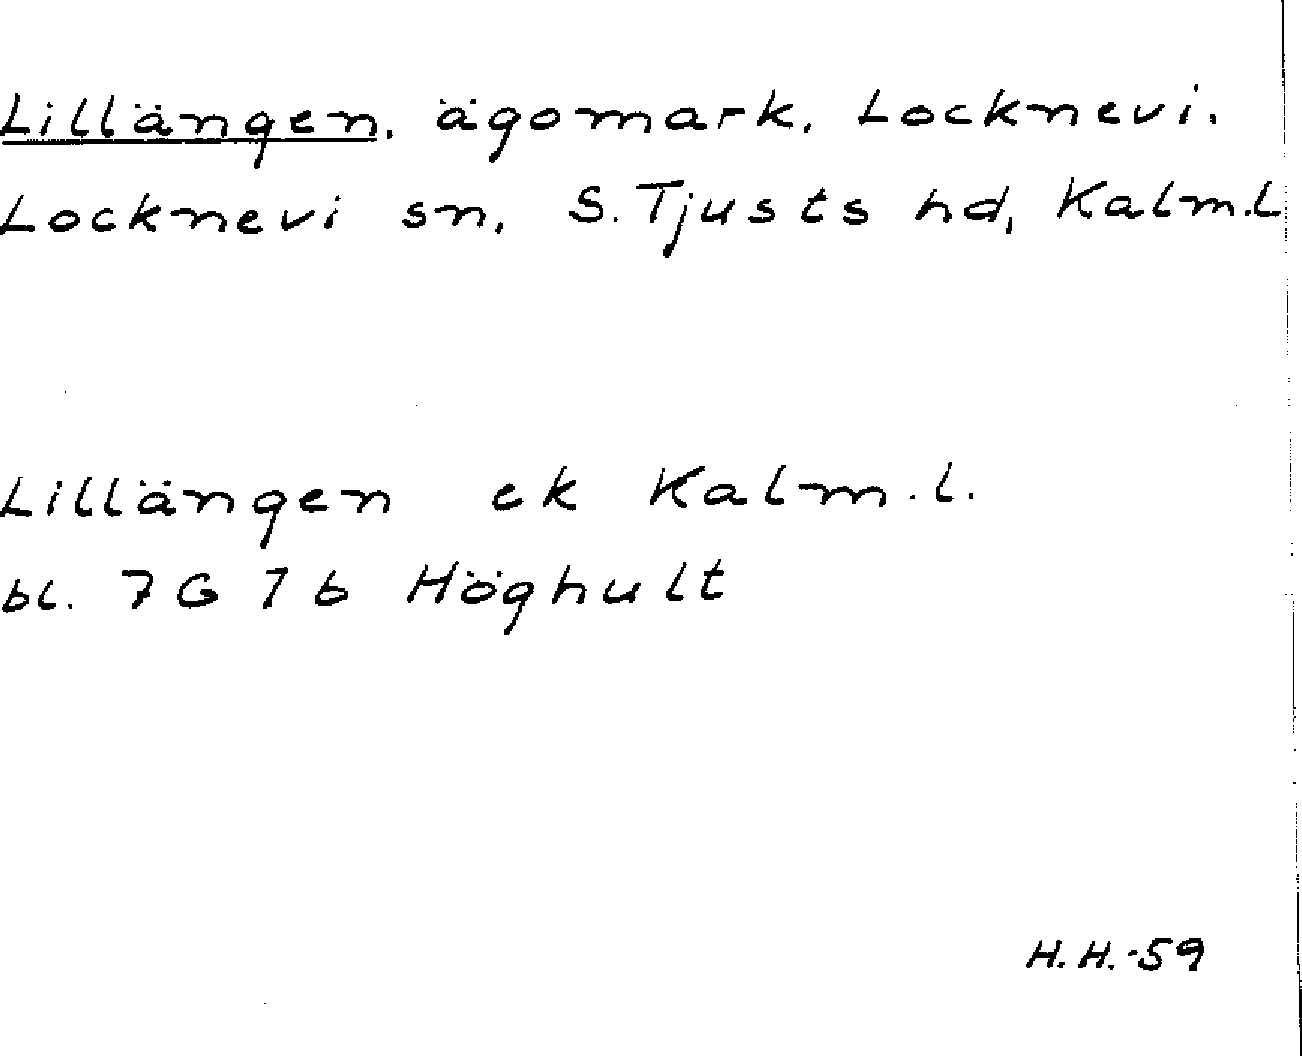 Lillängen, ägomark, Locknevi.
Locknevi sn, S. Tjusts hd, Kalm.l
Lillängen ek Kalm.l.
bl. 7G 7b Höghult
H.H.-59